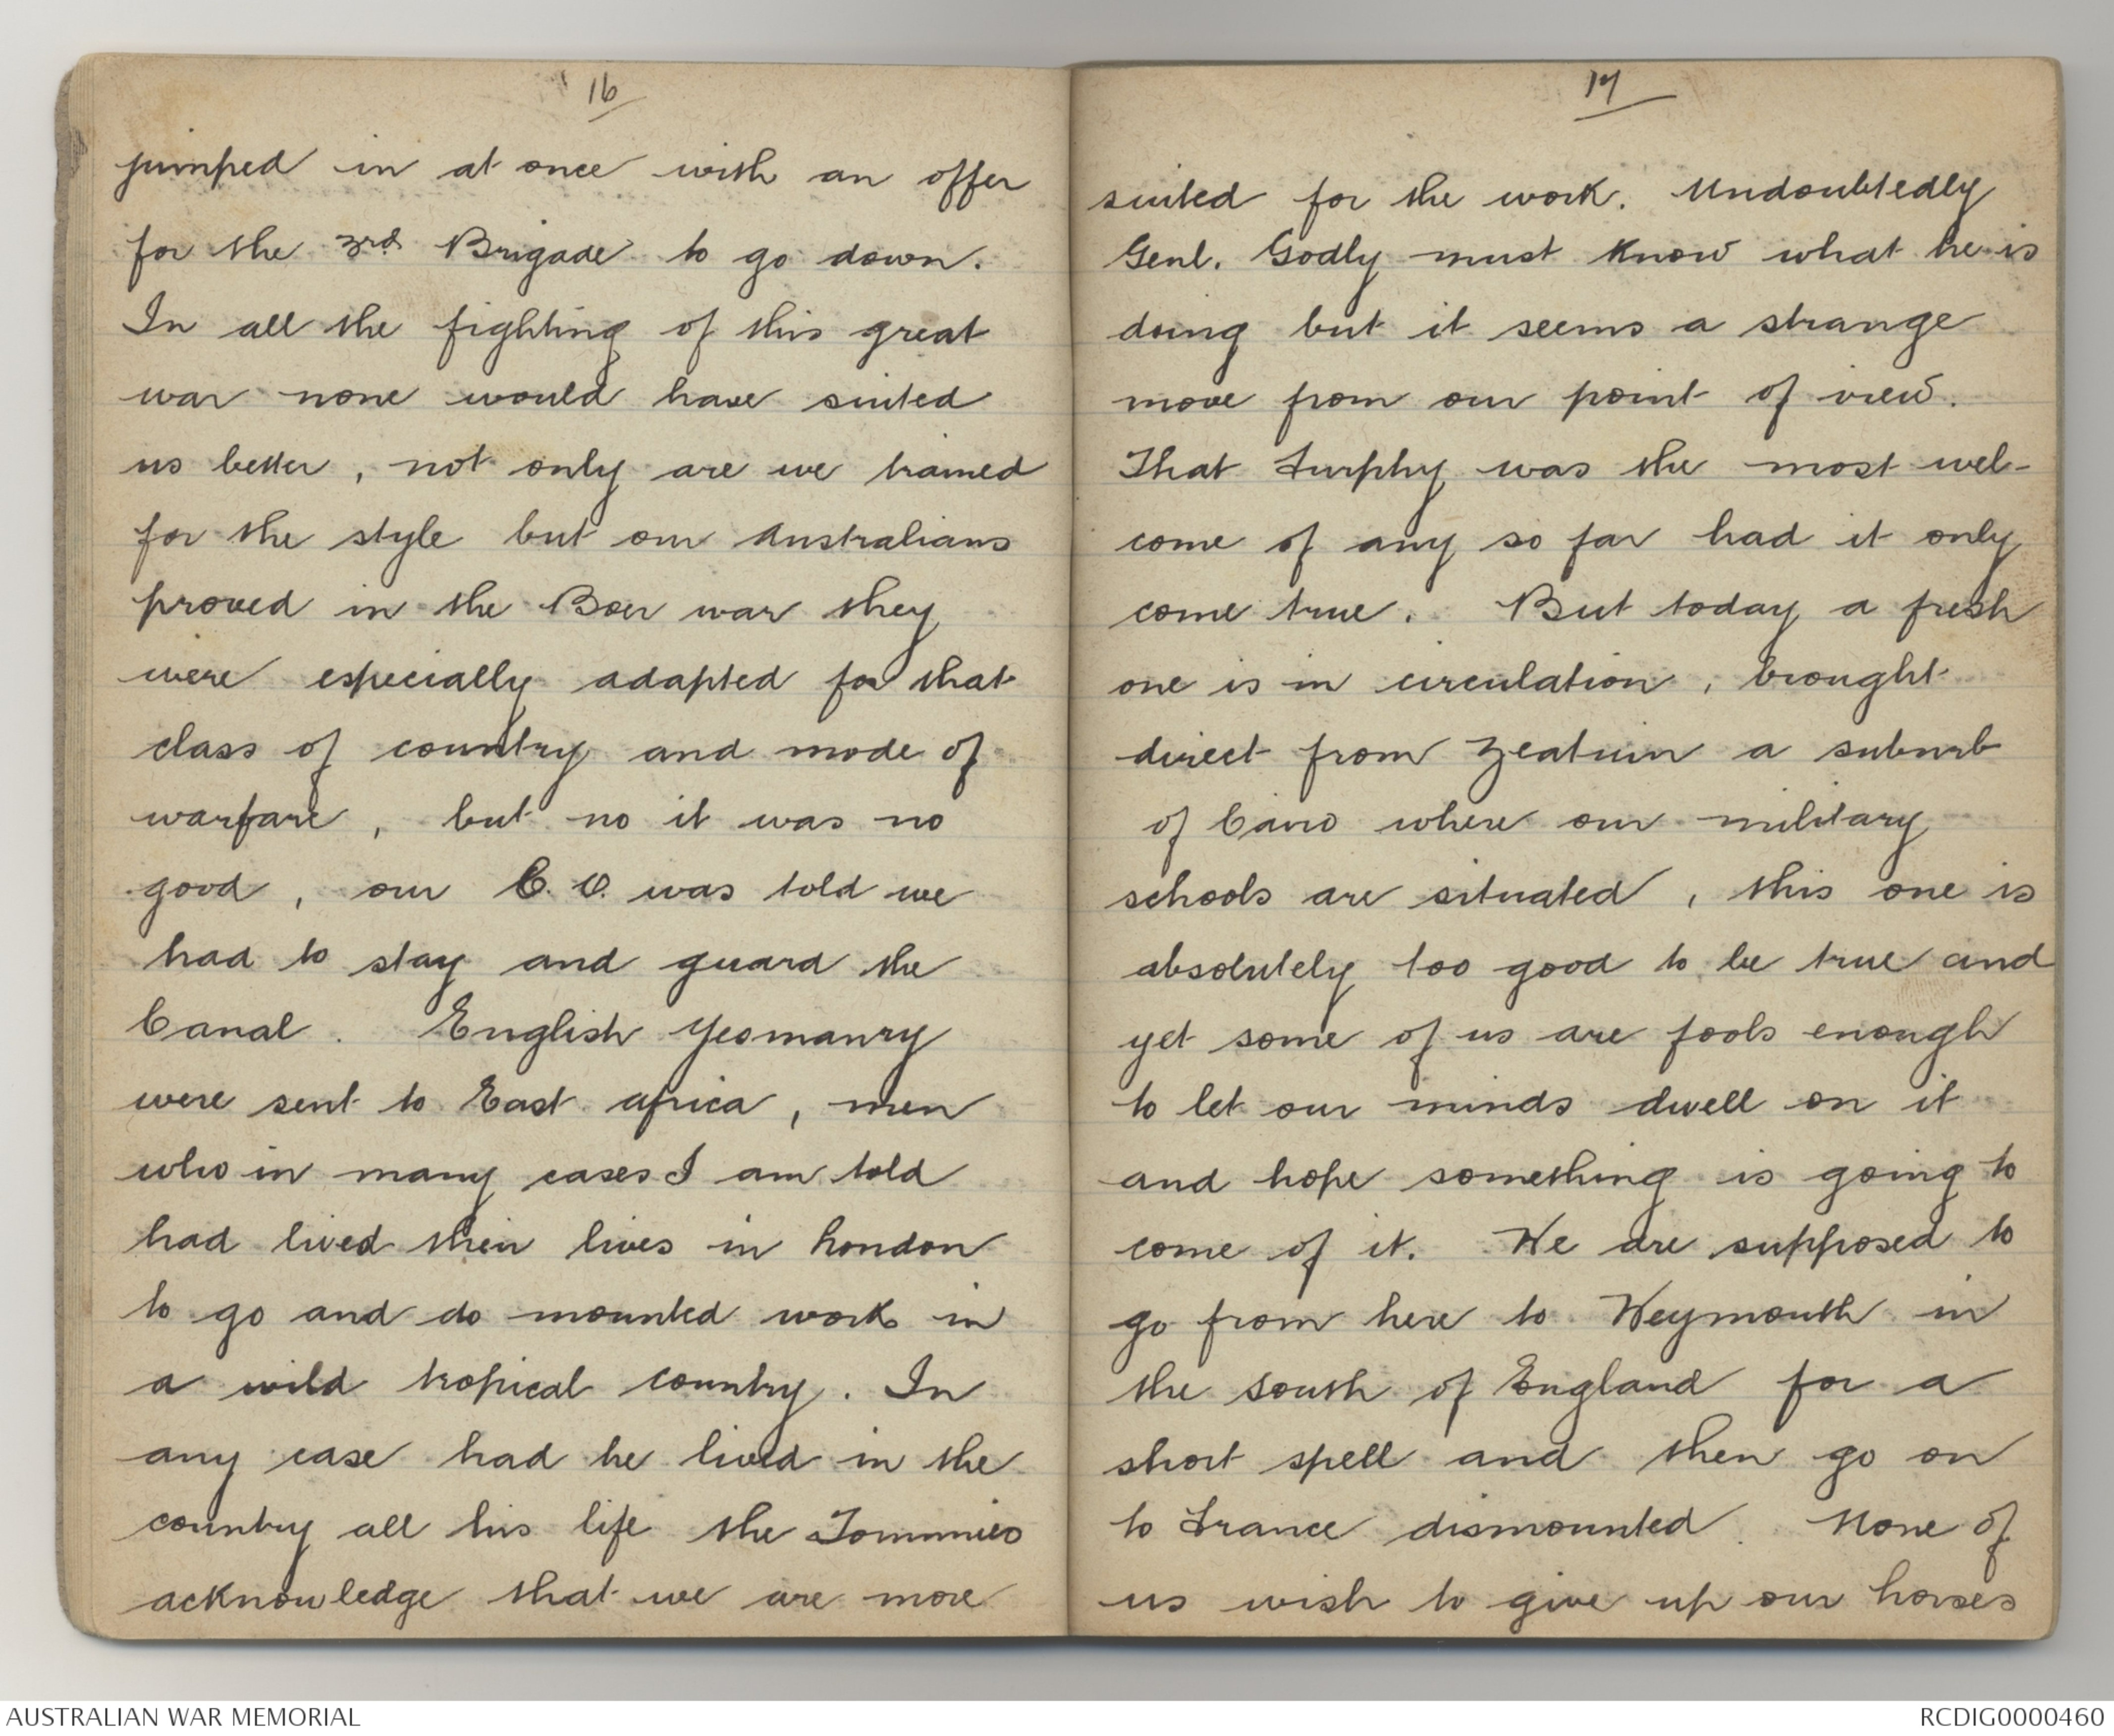 16
jumped in at once with an offer
for the 3rd Brigade to go down.
In all the fighting of this great
war none would have suited
us better, not only are we trained
for the style but our Australians
proved in the Boer war they
were especially adapted for that
class of country and mode of
warfare, but no it was no
good, our C.O. was told we
had to stay and guard the
Canal. English Yeomanry
were sent to East Africa, men
who in many cases I am told
had lived their lives in London
to go and do mounted work in
a wild tropical country. In
any case had he lived in the
country all his life the Tommies
acknowledge that we are more
17
suited for the work. Undoubtedly
Genl. Godly must know what he is
doing but it seems a strange
move from our point of view.
That Furphy was the most wel-
come of any so far had it only
come true. But today a fresh
one is in circulation, brought
direct from Zeatuin a suburb
of Cairo where our military
schools are situated, this one is
absolutely too good to be true and
yet some of us are fools enough
to let our minds dwell on it
and hope something is going to
come of it. We are supposed to
go from here to Weymouth in
the South of England for a
short spell and then go on
to France dismounted. None of
us wish to give up our horses
AUSTRALIAN WAR MEMORIAL
RCDIG0000460